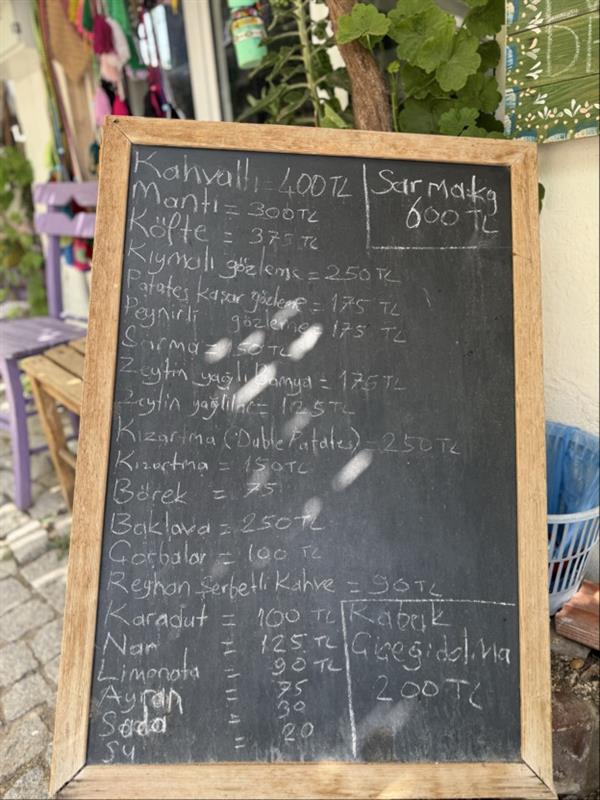 Kahvaltı = 400 TL
Mantı = 300 TL
Köfte = 375 TL
Kıymalı gözleme = 250 TL
Patates Kaşar gözleme = 175 TL
Peynirli gözleme = 175 TL
Sarma = 150 TL
Zeytin yağlı Bamya = 175 TL
Zeytin yağlılar = 125 TL
Kızartma (Duble Patates) = 250 TL
Kızartma = 150 TL
Börek = 75
Baklava = 250 TL
Çorbalar = 100 TL
Reyhan Şerbetli Kahve = 90 TL
Karadut = 100 TL
Nar = 125 TL
Limonata = 90 TL
Ayran = 75
Soda = 30
Su = 20
Sarma kg
600 TL
Kabak
Çiçeği dolma
200 TL